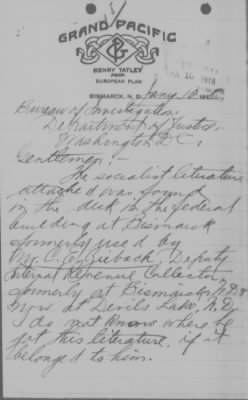 GRAND PACIFIC
HENRY TATLEY
PROP.
EUROPEAN PLAN
BISMARCK, N. D. Jany 10
1918
Bureau of Investigation,
Department of Justice,
Washington D.C.,
Gentlemen:-
The socialist literature
attached was found
in the desk in the federal
building at Bismarck
formerly used by
Mr. C. E. Deputy
Internal Revenue Collector
formerly at Bismarck, N.D. &
now at Devils Lake, N.D.
I do not know where he
got this literature, if it
belonged to him.